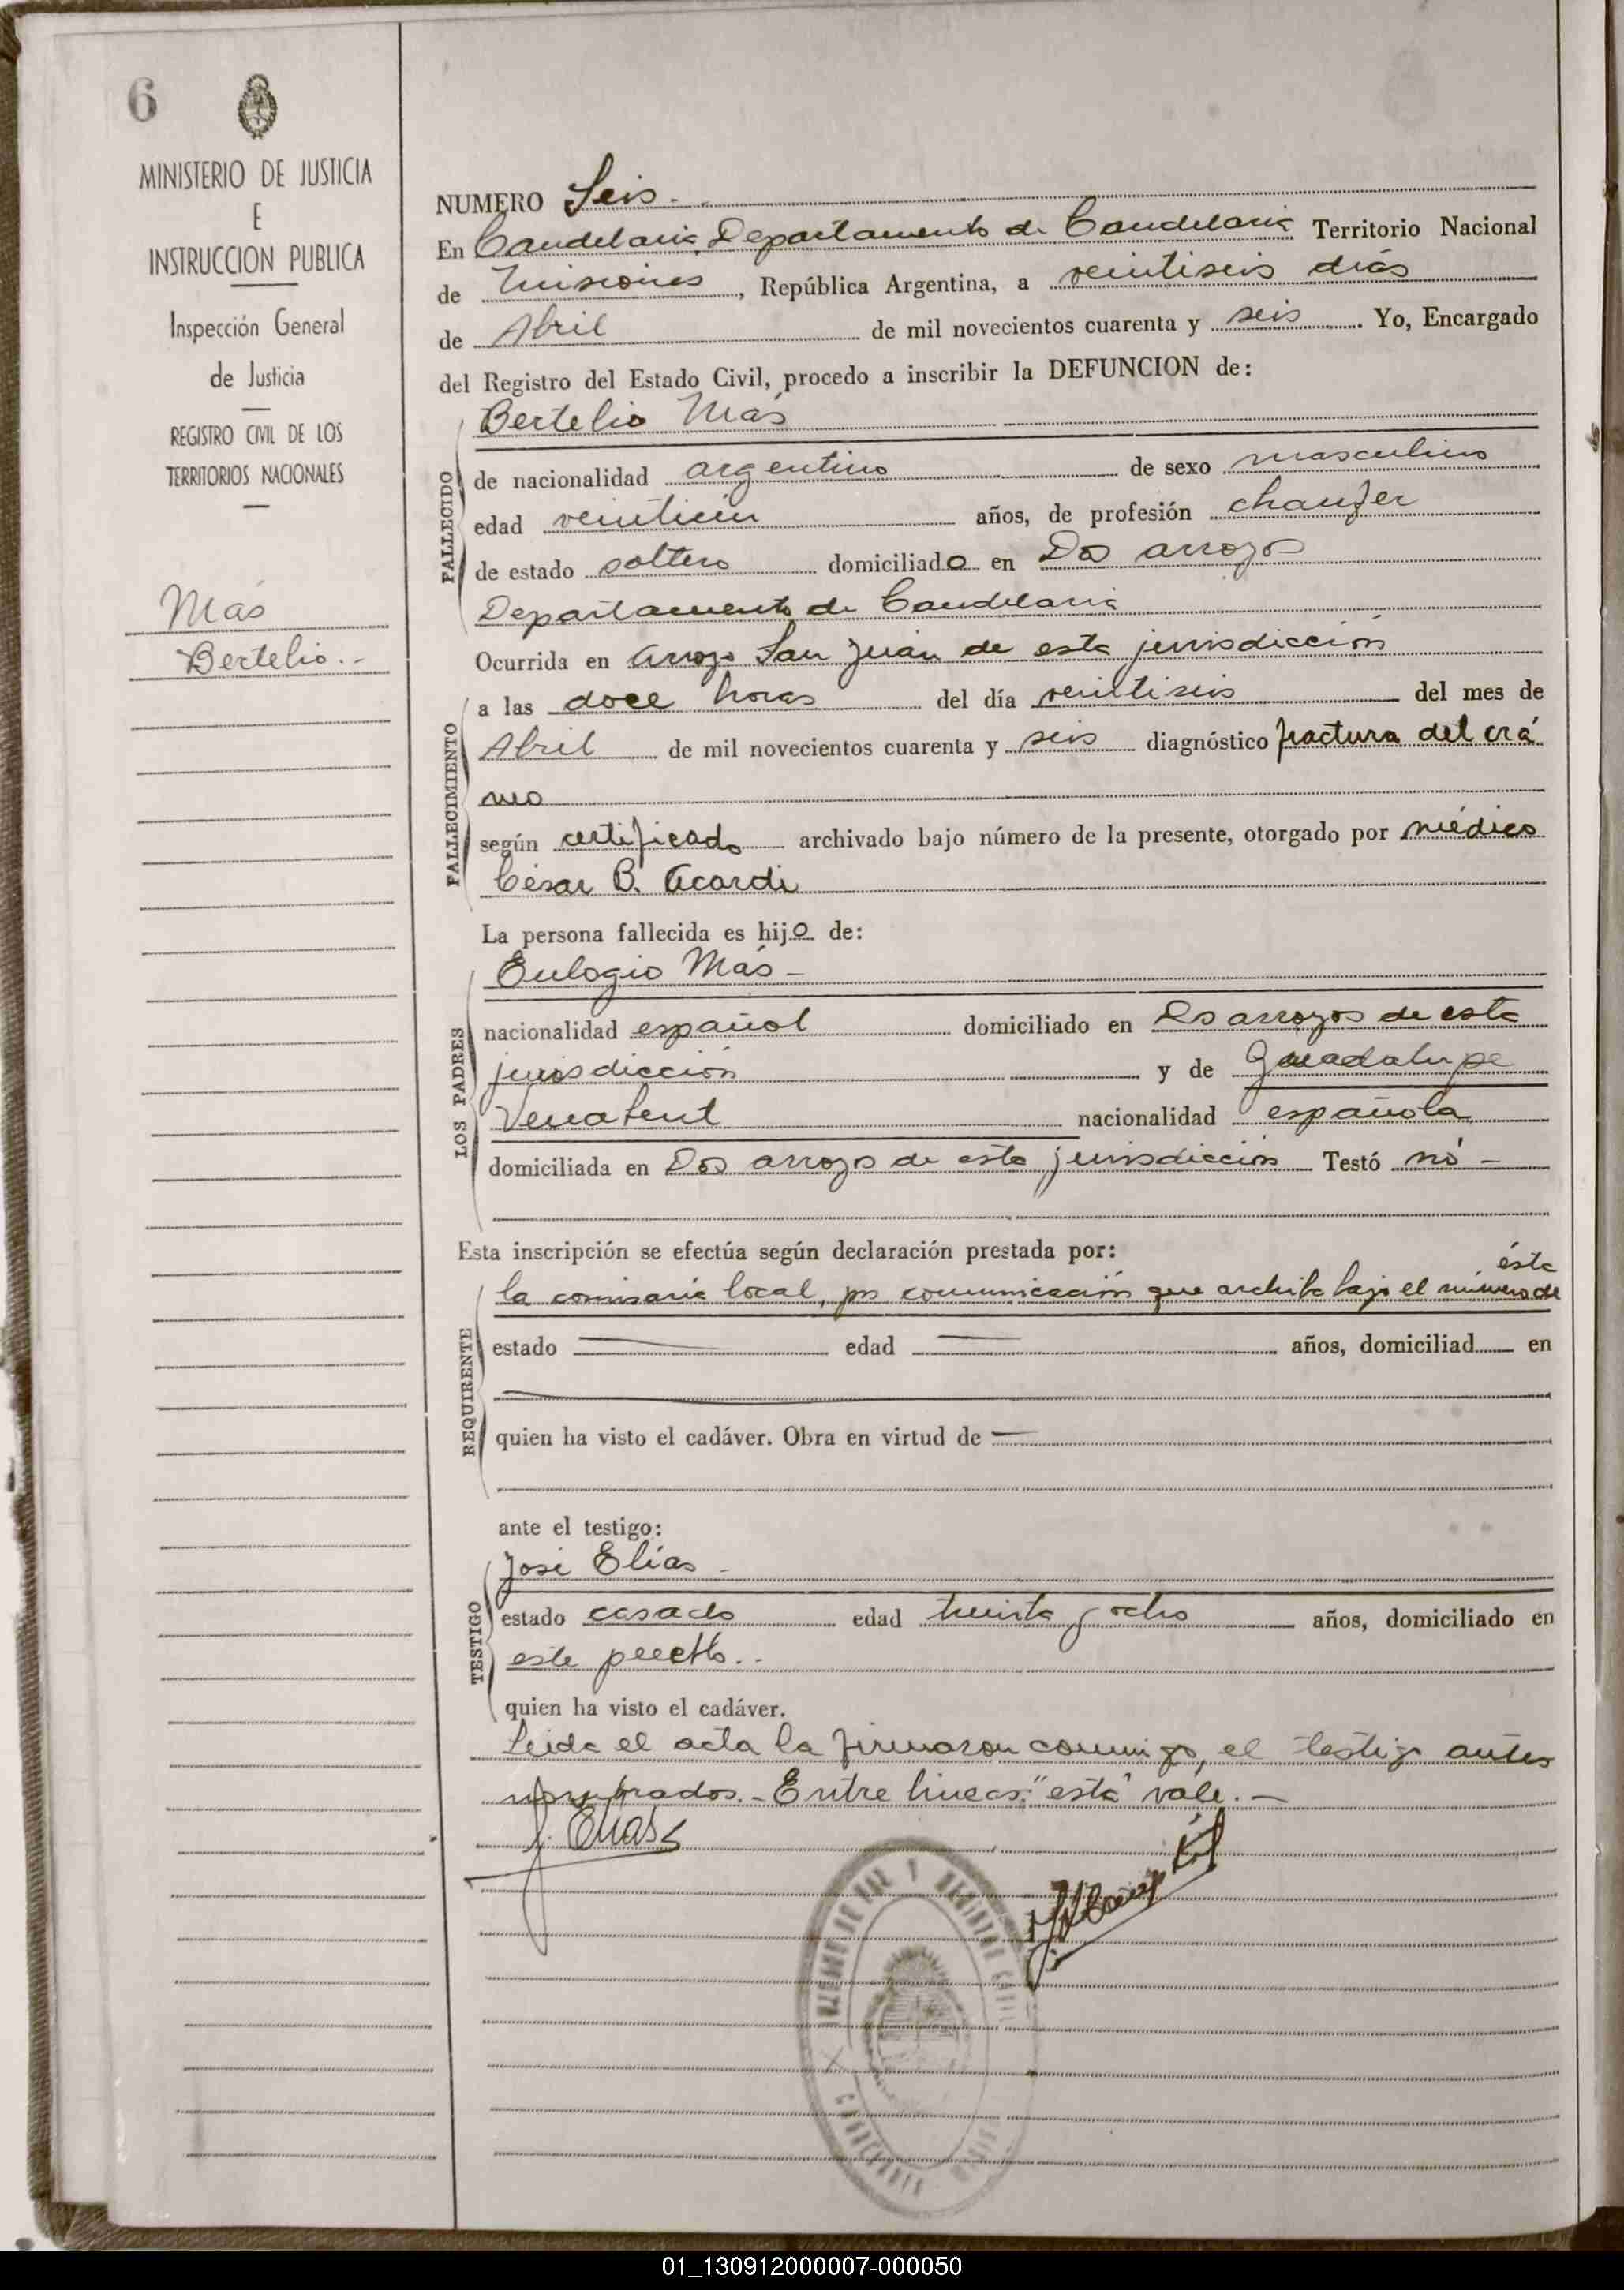 6
MINISTERIO DE JUSTICIA
E
INSTRUCCION PUBLICA
Inspección General
de Justicia
REGISTRO CIVIL DE LOS
TERRITORIOS NACIONALES
Más
Bertelio.-
NUMERO Seis.-
En Candelaria, Departamento de Candelaria Territorio Nacional
de Misiones, República Argentina, a veintiseis días
de Abril de mil novecientos cuarenta y seis. Yo, Encargado
del Registro del Estado Civil, procedo a inscribir la DEFUNCION de:
Bertelio Más
FALLECIDO
de nacionalidad argentino de sexo masculino
edad veintiun años, de profesión chaufer
de estado soltero domiciliado en Dos arroyos
Departamento de Candelaria
Ocurrida en arroyo San Juan de esta jurisdicción
FALLECIMIENTO
a las doce horas del día veintiseis del mes de
Abril de mil novecientos cuarenta y seis diagnóstico fractura del crá
neo
según certificado archivado bajo número de la presente, otorgado por médico
César B. Acardi
La persona fallecida es hijo de:
LOS PADRES
Eulogio Más -
nacionalidad español domiciliado en Dos arroyos de esta
jurisdicción y de Guadalupe
nacionalidad española
domiciliada en Dos arroyos de esta jurisdicción Testó nó -
Esta inscripción se efectúa según declaración prestada por:
REQUIRENTE
ésta
la comisaria local, por comunicación que archibo bajo el número de
estado edad años, domiciliad en
quien ha visto el cadáver. Obra en virtud de
ante el testigo:
TESTIGO
José Elías -
estado casado edad treinta y ocho años, domiciliado en
este pueblo.-
quien ha visto el cadáver.
Leida el acta la firmaron conmigo, el testigo antes
nombrados.- Entre lineas: "esta" vale.-
J. Elias
01_130912000007-000050